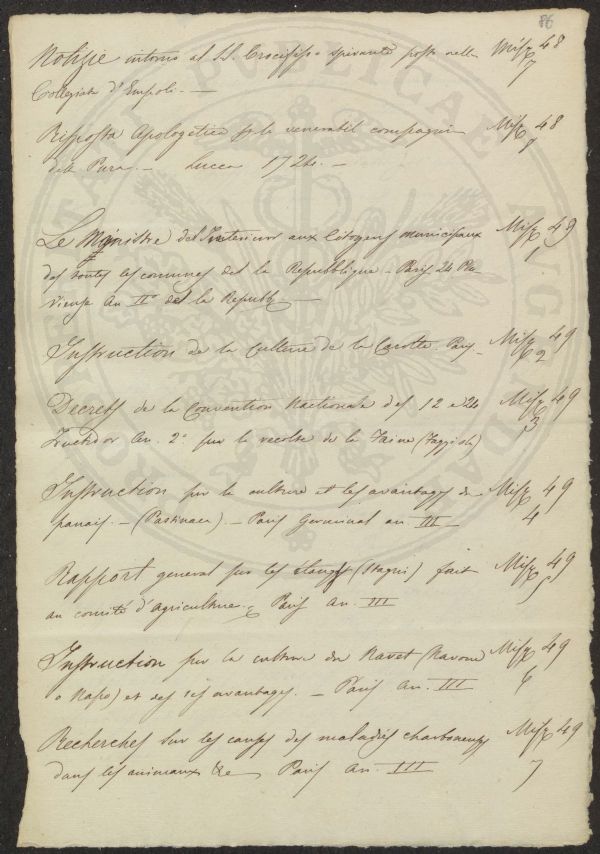 86
Notizie intorno al SS. Crocifisso spirante posto nella Misc 48
Collegiata d'Empoli. — 7
Risposta Apologetica p la venerabil compagnia Misc 48
della — Lucca — 8
Le Ministre de l'Interieur aux Citoyens municipaux Misc 49
des toutes les communes del la Repubblique — Paris 24 Plu- 1
viense An IIº del la Republ —
Instruction de la Culture de la Carotte. Paris — Misc 49
2
Decrets de la Convention Nactionale des 12 e 24 Misc 49
An. 2º sur la recolte de la Faine (Faggiola) 3
Instruction sur la culture et les avantages du Misc 49
panais. — (Pastinaca). — Paris Germinal an. III — 4
Rapport general sur les etangs (Stagni) fait Misc 49
au comité d'agriculture. Paris An. III 5
Instruction sur la culture du Navet (Navone Misc 49
o Napo) et des ses avantages. — Paris An. III 6
Recherches sur les causes des maladies charboneuses Misc 49
dans les animaux &c Paris An. III 7
PUBLICAE